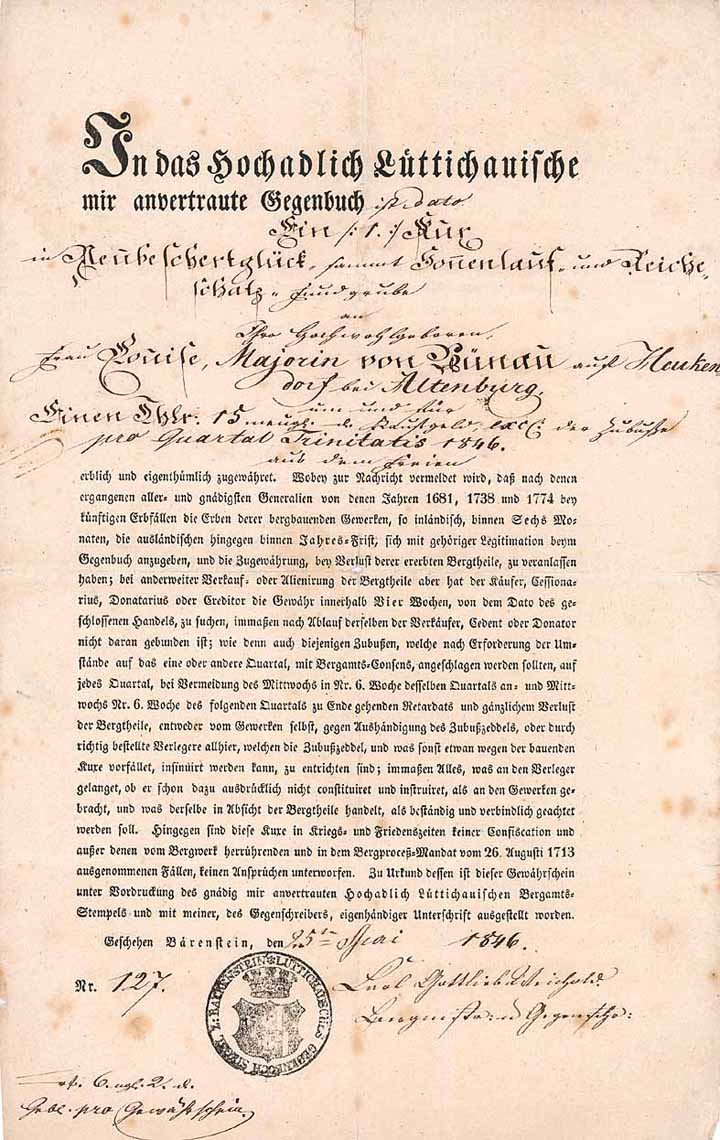 In das Hochadlich Lüttichauische
mir anvertraute Gegenbuch ist dato
Ein /: 1. :/ Kux
in Neubeschertglück, sammt Sonnenlauf- und Reiche-
schatz- Fundgrube
an
Ihro Hochwohlgeboren,
Frau Louise, Majorin von Bünau auf Heuken
dorf bei Altenburg,
um und für
Einen Thlr. 15 neugl. Kaufgeld, excl. der Zubuße
pro Quartal Trinitatis 1846.
aus dem Freien
erblich und eigenthümlich zugewähret. Wobey zur Nachricht vermeldet wird, daß nach denen
ergangenen aller- und gnädigsten Generalien von denen Jahren 1681, 1738 und 1774 bey
künftigen Erbfällen die Erben derer bergbauenden Gewerken, so inländisch, binnen Sechs Mo-
naten, die ausländischen hingegen binnen Jahres-Frist, sich mit gehöriger Legitimation beym
Gegenbuch anzugeben, und die Zugewährung, bey Verlust derer ererbten Bergtheile, zu veranlassen
haben; bei anderweiter Verkauf- oder Alienirung der Bergtheile aber hat der Käufer, Cessiona-
rius, Donatarius oder Creditor die Gewähr innerhalb Vier Wochen, von dem Dato des ge-
schlossenen Handels, zu suchen, immaßen nach Ablauf derselben der Verkäufer, Cedent oder Donator
nicht daran gebunden ist; wie denn auch diejenigen Zubußen, welche nach Erforderung der Um-
stände auf das eine oder andere Quartal, mit Bergamts-Consens, angeschlagen werden sollten, auf
jedes Quartal, bei Vermeidung des Mittwochs in Nr. 6. Woche desselben Quartals an- und Mitt-
wochs Nr. 6. Woche des folgenden Quartals zu Ende gehenden Retardats und gänzlichem Verlust
der Bergtheile, entweder vom Gewerken selbst, gegen Aushändigung des Zubußzeddels, oder durch
richtig bestellte Verlegere allhier, welchen die Zubußzeddel, und was sonst etwan wegen der bauenden
Kuxe vorfället, insinuirt werden kann, zu entrichten sind; immaßen Alles, was an den Verleger
gelanget, ob er schon dazu ausdrücklich nicht constituiret und instruiret, als an den Gewerken ge-
bracht, und was derselbe in Absicht der Bergtheile handelt, als beständig und verbindlich geachtet
werden soll. Hingegen sind diese Kuxe in Kriegs- und Friedenszeiten keiner Confiscation und
außer denen vom Bergwerk herrührenden und in dem Bergproceß-Mandat vom 26. Augusti 1713
ausgenommenen Fällen, keinen Ansprüchen unterworfen. Zu Urkund dessen ist dieser Gewährschein
unter Vordruckung des gnädig mir anvertrauten Hochadlich Lüttichauischen Bergamts-
Stempels und mit meiner, des Gegenschreibers, eigenhändiger Unterschrift ausgestellt worden.
Geschehen Bärenstein, den 25ten Mai 1846.
Nr. 127.
Carl Gottlieb Reichold
Bergmstr. u Gegenschr:
LÜTTICHAUISCHES GEGENBUCH SIEGEL Z: BAERENSTEIN
6. ngl. 2. d.
Gebl. pro Gewährschein